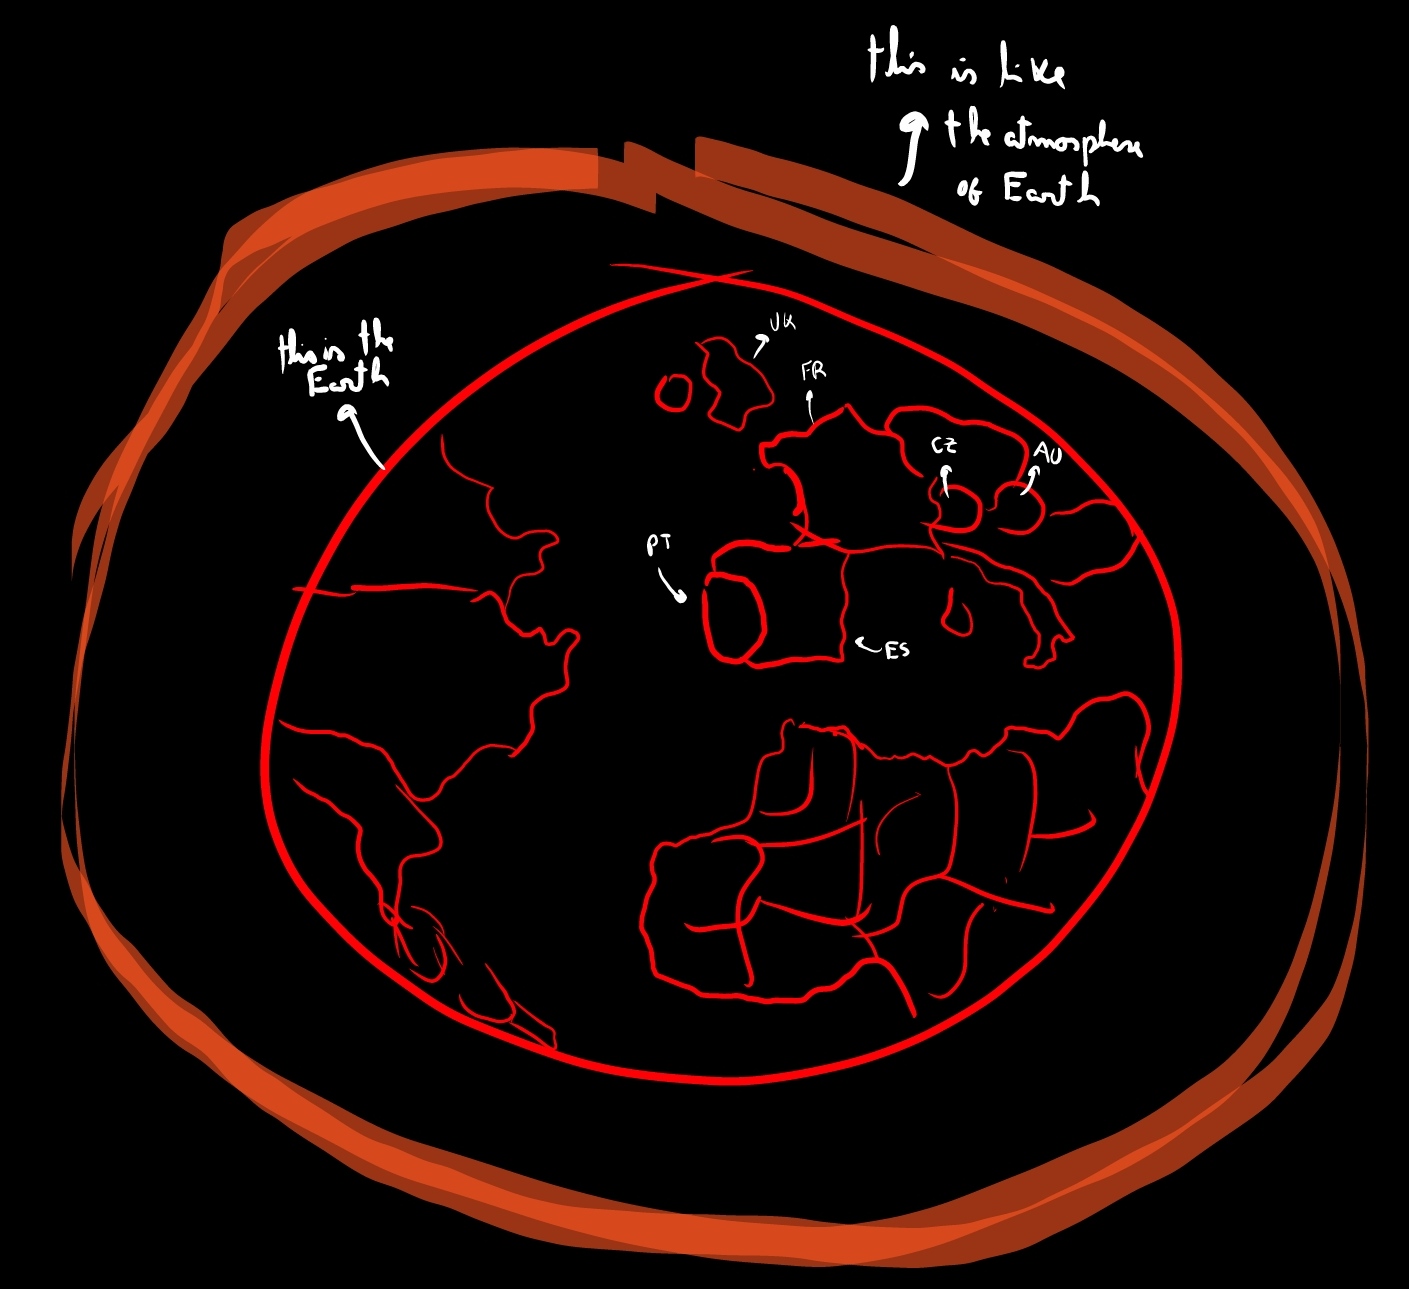 this is like
the atmosphere
of Earth
this is the
Earth
UK
FR
CZ
AU
PT
ES